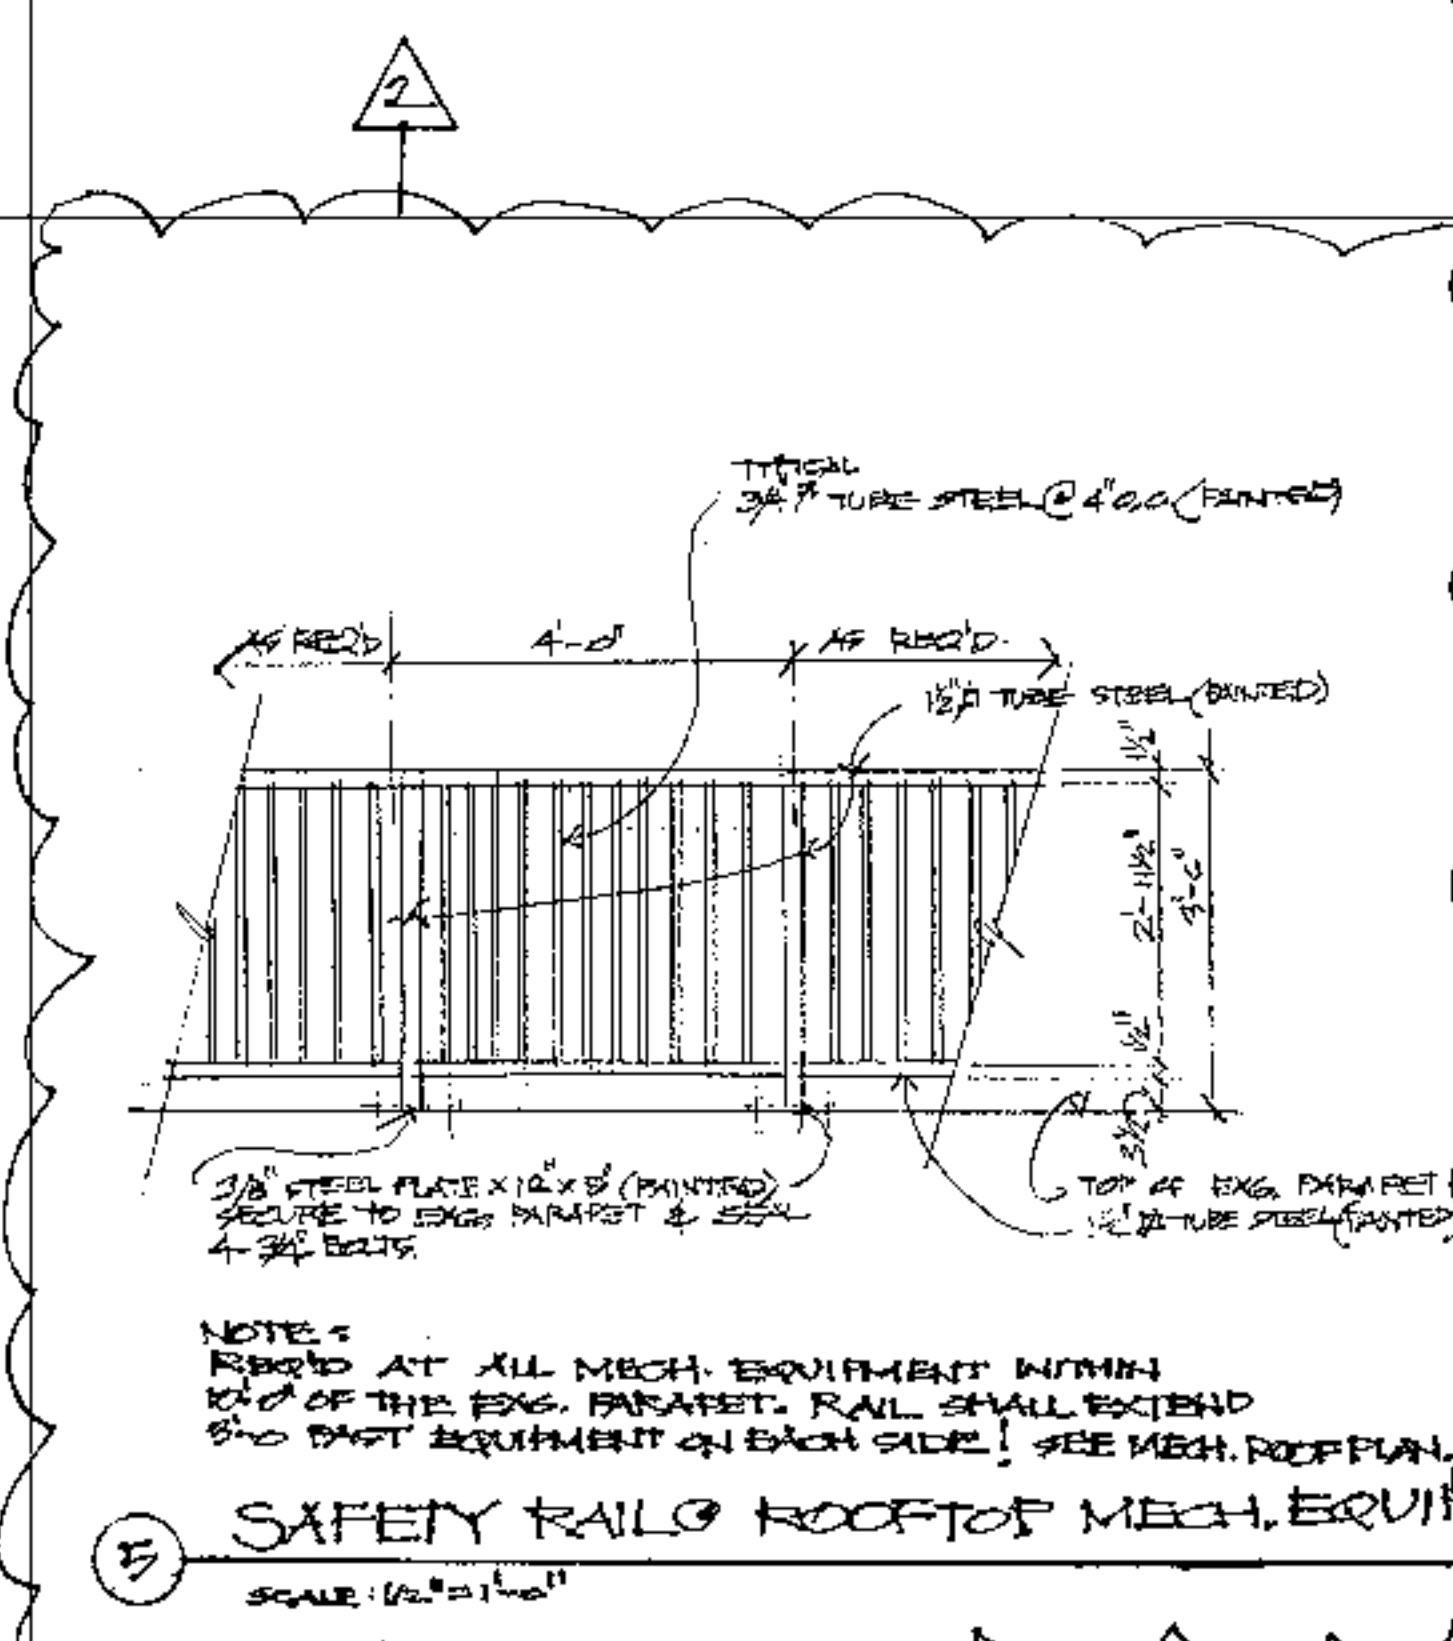 2
TYPICAL
3/4" TUBE STEEL @ 4" O.C. (PAINTED)
AS REQ'D
4'-0"
AS REQ'D
1½" TUBE STEEL (PAINTED)
1½"
2'-11½"
3'-6"
1½"
3½"
3/8" STEEL PLATE X 12" X 8" (PAINTED)
SECURE TO EXG. PARAPET & SEAL
4-3/4" BOLTS
TOP OF EXG. PARAPET
1½" TUBE STEEL (PAINTED)
NOTE:
REQ'D AT ALL MECH. EQUIPMENT WITHIN
10'-0" OF THE EXG. PARAPET. RAIL SHALL EXTEND
PAST EQUIPMENT ON EACH SIDE! SEE MECH. ROOF PLAN.
5
SAFETY RAIL @ ROOFTOP MECH. EQUI
SCALE: 1/2"=1'-0"